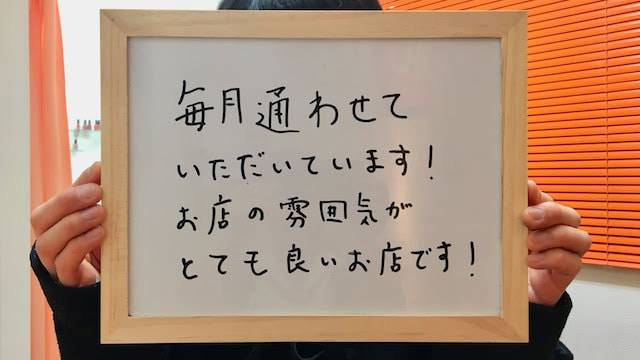 毎月通わせて
いただいています！
お店の雰囲気が
とても良いお店です！